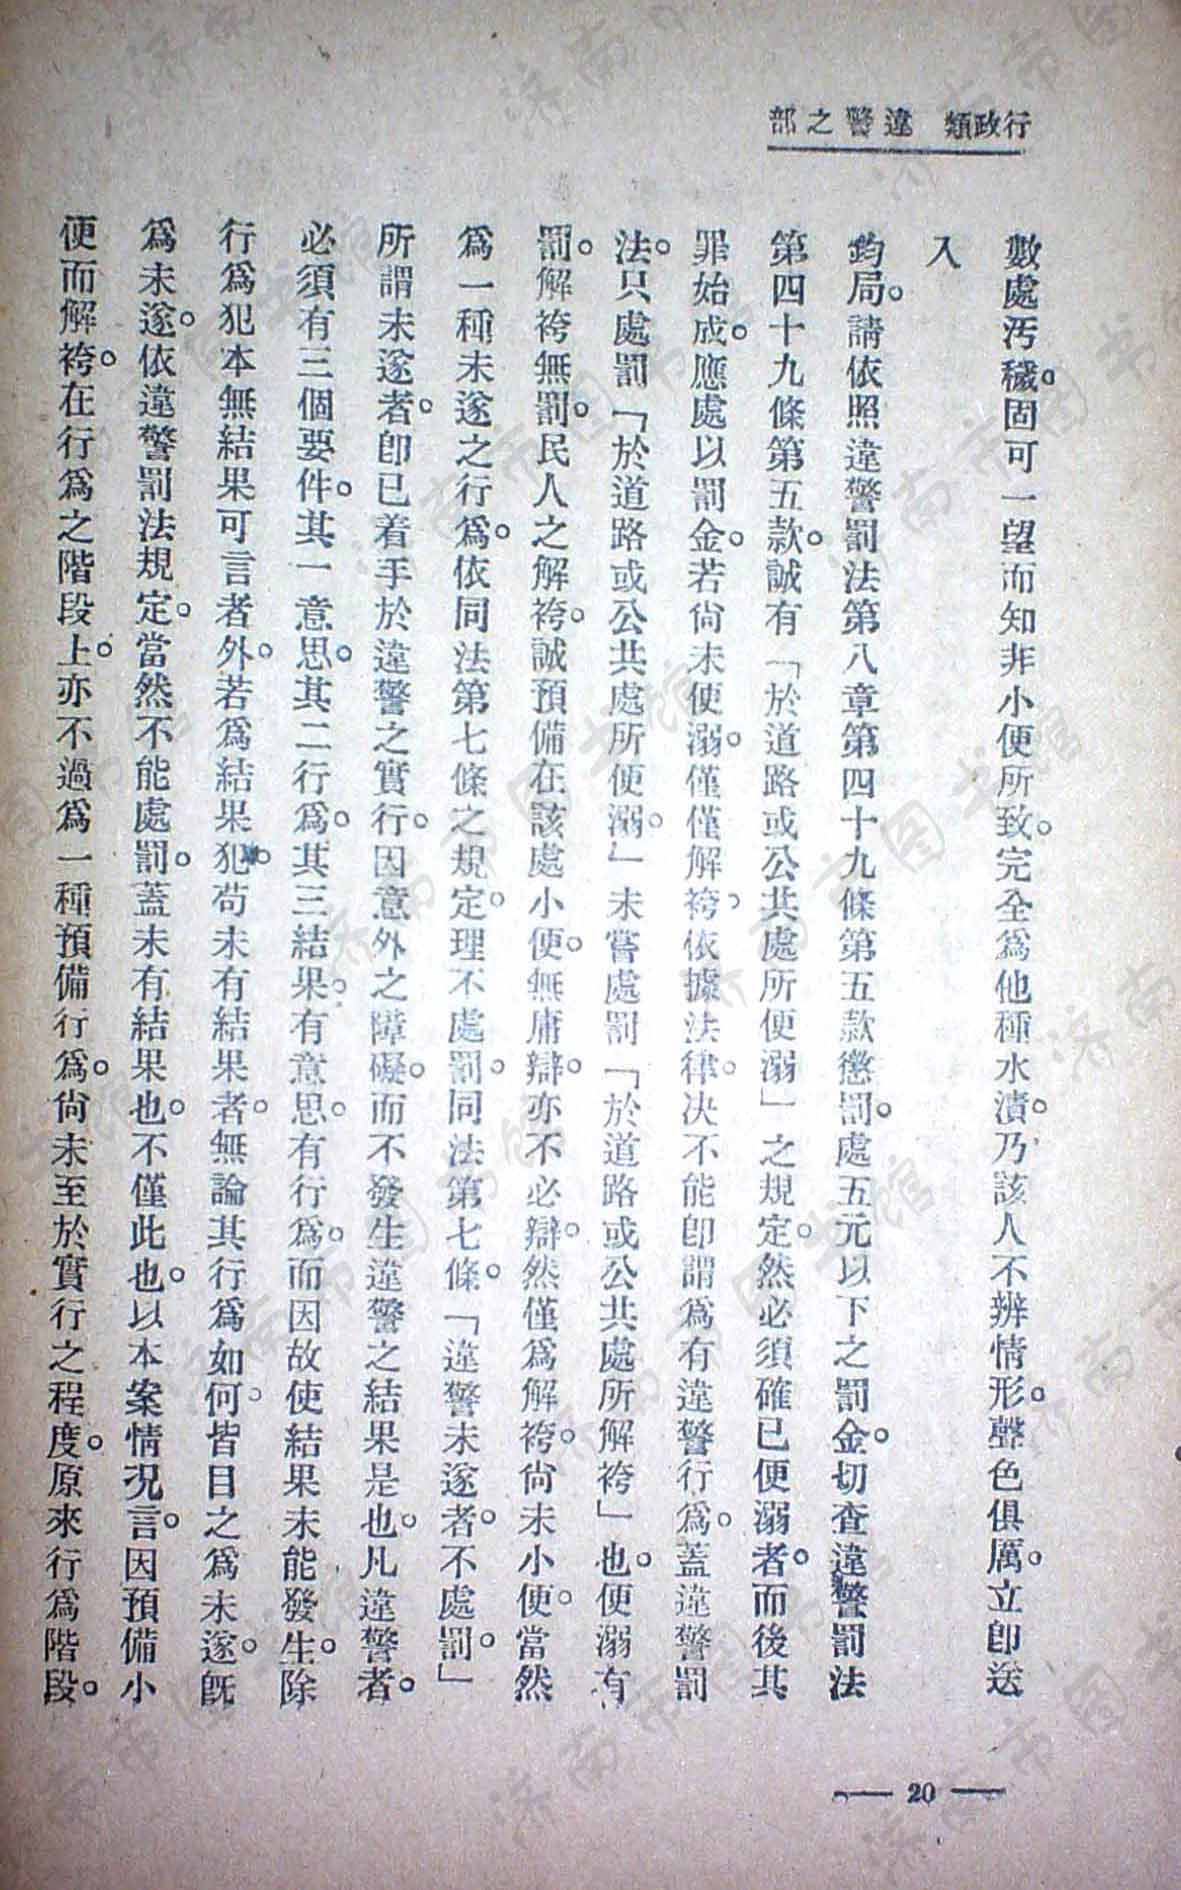 行政類　違警之部
數處汚穢。固可一望而知非小便所致。完全爲他種水漬。乃該人不辨情形。聲色俱厲。立即送
入
鈞局。請依照違警罰法第八章第四十九條第五款懲罰。處五元以下之罰金。切查違警罰法
第四十九條第五款。誠有「於道路或公共處所便溺」之規定。然必須確已便溺者。而後其
罪始成。應處以罰金。若尙未便溺。僅僅解袴。依據法律。决不能即謂爲有違警行爲。蓋違警罰
法。只處罰「於道路或公共處所便溺。」未嘗處罰「於道路或公共處所解袴」也。便溺有
罰。解袴無罰。民人之解袴。誠預備在該處小便。無庸辯。亦不必辯。然僅爲解袴。尙未小便。當然
爲一種未遂之行爲。依同法第七條之規定。理不處罰。同法第七條。「違警未遂者。不處罰。」
所謂未遂者。卽已着手於違警之實行。因意外之障礙。而不發生違警之結果是也。凡違警者。
必須有三個要件。其一意思。其二行爲。其三結果。有意思。有行爲。而因故使結果未能發生。除
行爲犯本無結果可言者外。若爲結果犯。苟未有結果者。無論其行爲如何。皆目之爲未遂。旣
爲未遂。依違警罰法規定。當然不能處罰。蓋未有結果也。不僅此也。以本案情况言。因預備小
便而解袴。在行爲之階段上。亦不過爲一種預備行爲。尙未至於實行之程度。原來行爲階段。
— 20 —
济南市图书馆